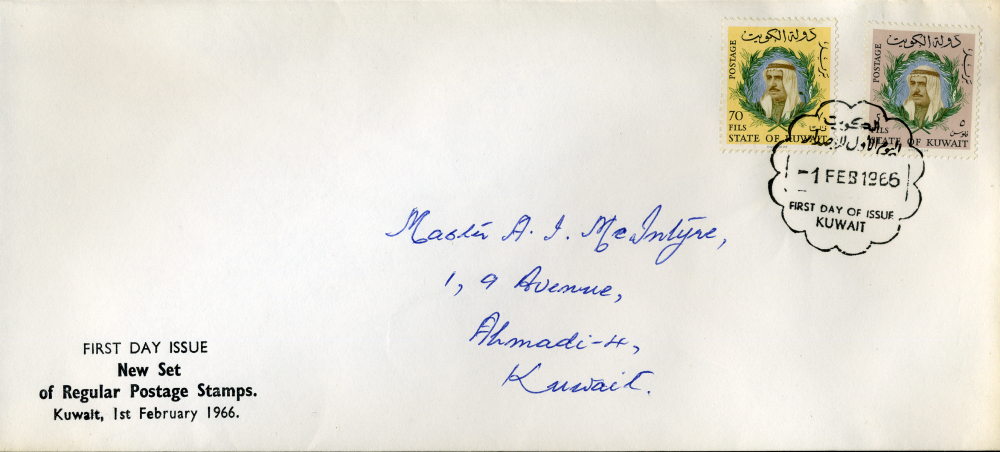 دولة الكويت
POSTAGE
70
FILS
STATE OF KUWAIT
دولة الكويت
POSTAGE
٥
فلوس
FILS
STATE OF KUWAIT
الكويت
اليوم الأول للإصدار
-1 FEB 1966
FIRST DAY OF ISSUE
KUWAIT
Master A. I. McIntyre,
1, 9 Avenue,
Ahmadi-4,
Kuwait.
FIRST DAY ISSUE
New Set
of Regular Postage Stamps.
Kuwait, 1st February 1966.